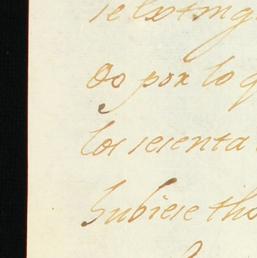 se exting
do por lo q
los sesenta
hubiese tho